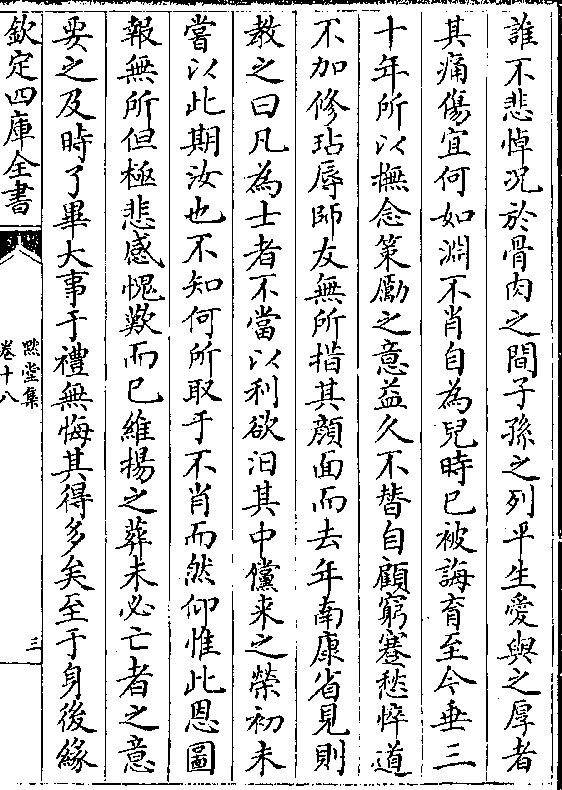 誰不悲悼况於骨肉之間子孫之列平生愛與之厚者
其痛傷宜何如淵不肖自為兒時已被誨育至今垂三
十年所以撫念策勵之意益久不替自顧窮蹇愁悴道
不加修玷辱師友無所措其顔面而去年南康省見則
教之曰凡為士者不當以利欲汩其中儻来之榮初未
嘗以此期汝也不知何所取于不肖而然仰惟此恩圖
報無所但極悲感愧歎而已維揚之葬未必亡者之意
要之及時了畢大事于禮無悔其得多矣至于身後緣
欽定四庫全書
黙堂集
卷十八
三